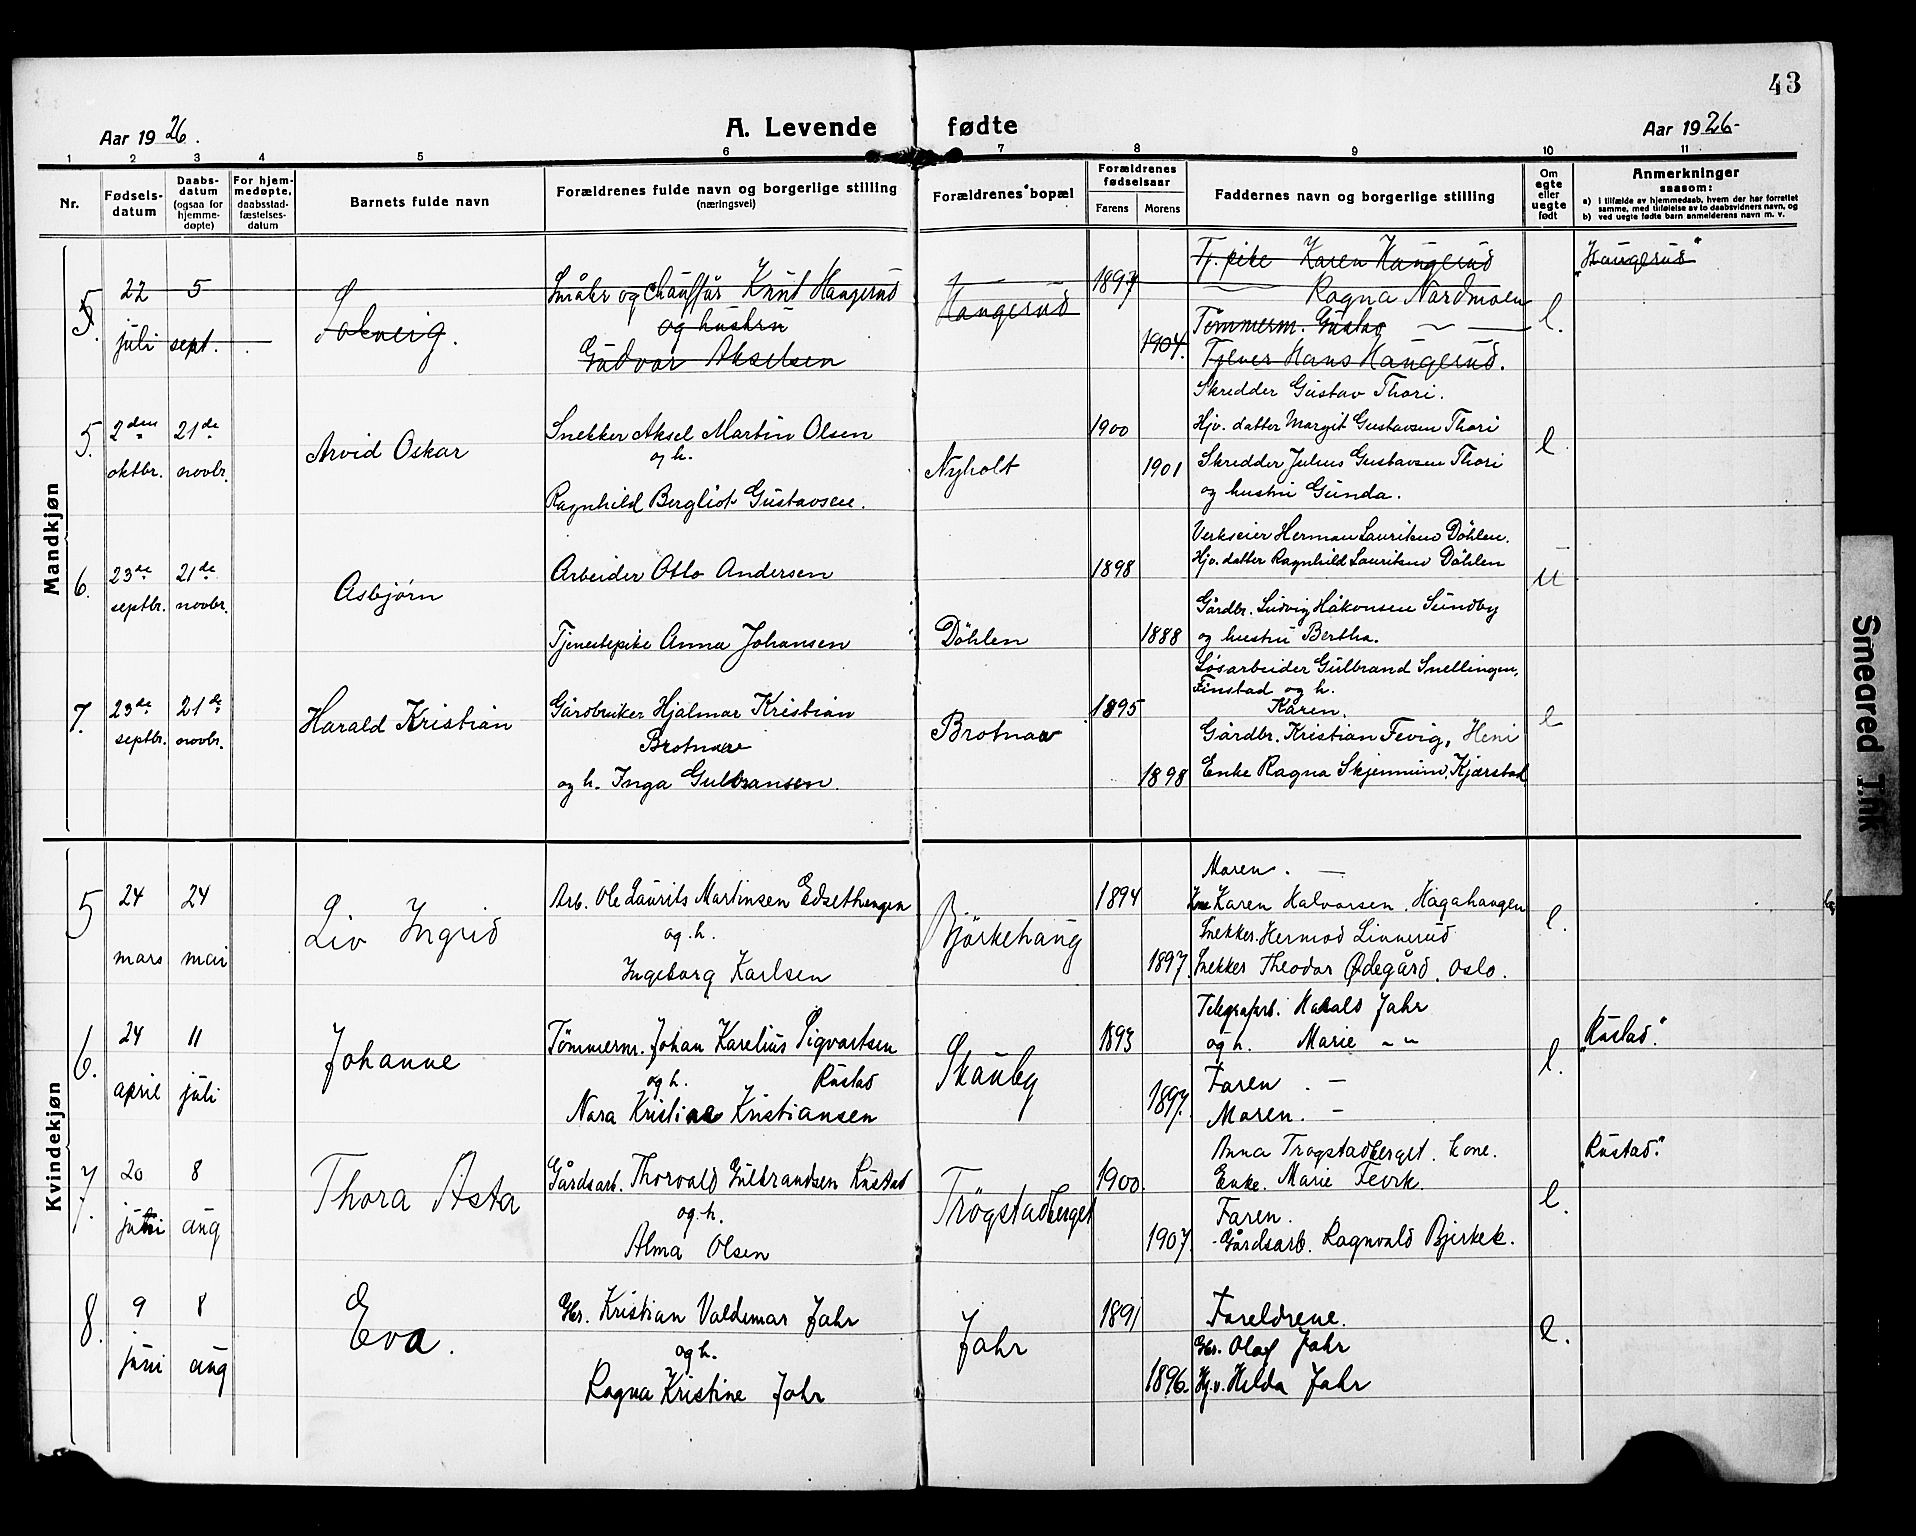 43
Aar 1926.
A. Levende fødte
Aar 1926.
1 2 3 4 5 6 7 8 9 10 11
Nr.
Fødsels-
datum
Daabs-
datum
(ogsaa for
hjemme-
døpte)
For hjem-
medøpte,
daabsstad-
fæstelses-
datum
Barnets fulde navn
Forældrenes fulde navn og borgerlige stilling
(næringsvei)
Forældrenes bopæl
Forældrenes
fødselsaar
Farens Morens
Faddernes navn og borgerlige stilling
Om
egte
eller
uegte
født
Anmerkninger
saasom:
a) i tilfælde av hjemmedaab, hvem der har forrettet
samme, med tilføielse av to daabsvidners navn, og
b) ved uegte fødte barn anmelderens navn m. v.
Mandkjøn
5.
22 juli
5 sept.
Solveig.
Småbr og chauffør Knut Haugerud
og hustru
Gudvor Akselsen
Haugerud
1897
1904.
Tj. pike Karen Haugerud
Ragna Nordmoen
Tømmerm. Gustav
Hans Haugerud.
e.
"Haugerud"
5.
2den oktbr.
21de novbr.
Arvid Oskar
Snekker Aksel Martin Olsen
og h.
Ragnhild Bergliot Gustavsen.
Nyholt
1900
1901
Skredder Gustav Thori.
Hjv. datter Margit Gustavsen Thori
Skredder Julius Gustavsen Thori
og hustru Gunda.
e.
6.
23de septbr.
21de novbr.
Asbjørn
Arbeider Otto Andersen
Tjenestepike Anna Johansen
Döhlen
1898
1888
Verkseier Herman Lauritsen Döhlen.
Hjv. datter Ragnhild Lauritsen Döhlen
Gårdbr. Ludvig Håkonsen Sundby
og hustru Bertha.
u
7.
23de septbr.
21de novbr.
Harald Kristian
Gårdbruker Hjalmar Kristian
Brotnov
og h. Inga Gulbransen.
Brotnov
1895
1898
Løsarbeider Gulbrand Snellingen,
Finstad og h.
Karen.
Gårdbr. Kristian Fevig, Heni
Enke Ragna Skjennum, Kjærstad
e
Kvindekjøn
5
24 mars
24 mai
Liv Ingrid
Arb. Ole Laurits Martinsen Edsethengen
og h.
Ingeborg Karlsen
Bjørkehaug
1894
1897.
Moren. —
Kone Karen Halvorsen. Hagahaugen
Snekker. Hermod Linnerud
Snekker Theodor Ødegård. Oslo.
e.
6.
24 april
11 juli
Johanne
Tømmerm. Johan Karelius Sigvartsen
og h. Rustad
Nora Kristine Kristiansen
Skauby
1893
1897.
Telegrafarb. Harald Jahr
og h. Marie „ „
Faren. —
Moren. —
e.
"Rustad."
7.
20 juni
8 aug
Thora Asta
Gårdsarb. Thorvald Gulbrandsen Rustad
og h.
Alma Olsen
Trøgstadberget
1900.
1907.
Anna Trogstadberget. kone.
Enke. Marie Fevik.
Faren.
Gårdsarb. Ragnvald Bjerkek.
e.
"Rustad."
8.
9 juni
8 aug
Eva.
Gbr. Kristian Valdemar Jahr
og h.
Ragna Kristine Jahr
Jahr
1891
1896.
Foreldrene.
Gbr. Olaf Jahr
Hj.v. Helda Jahr
e.
Smeared Ink